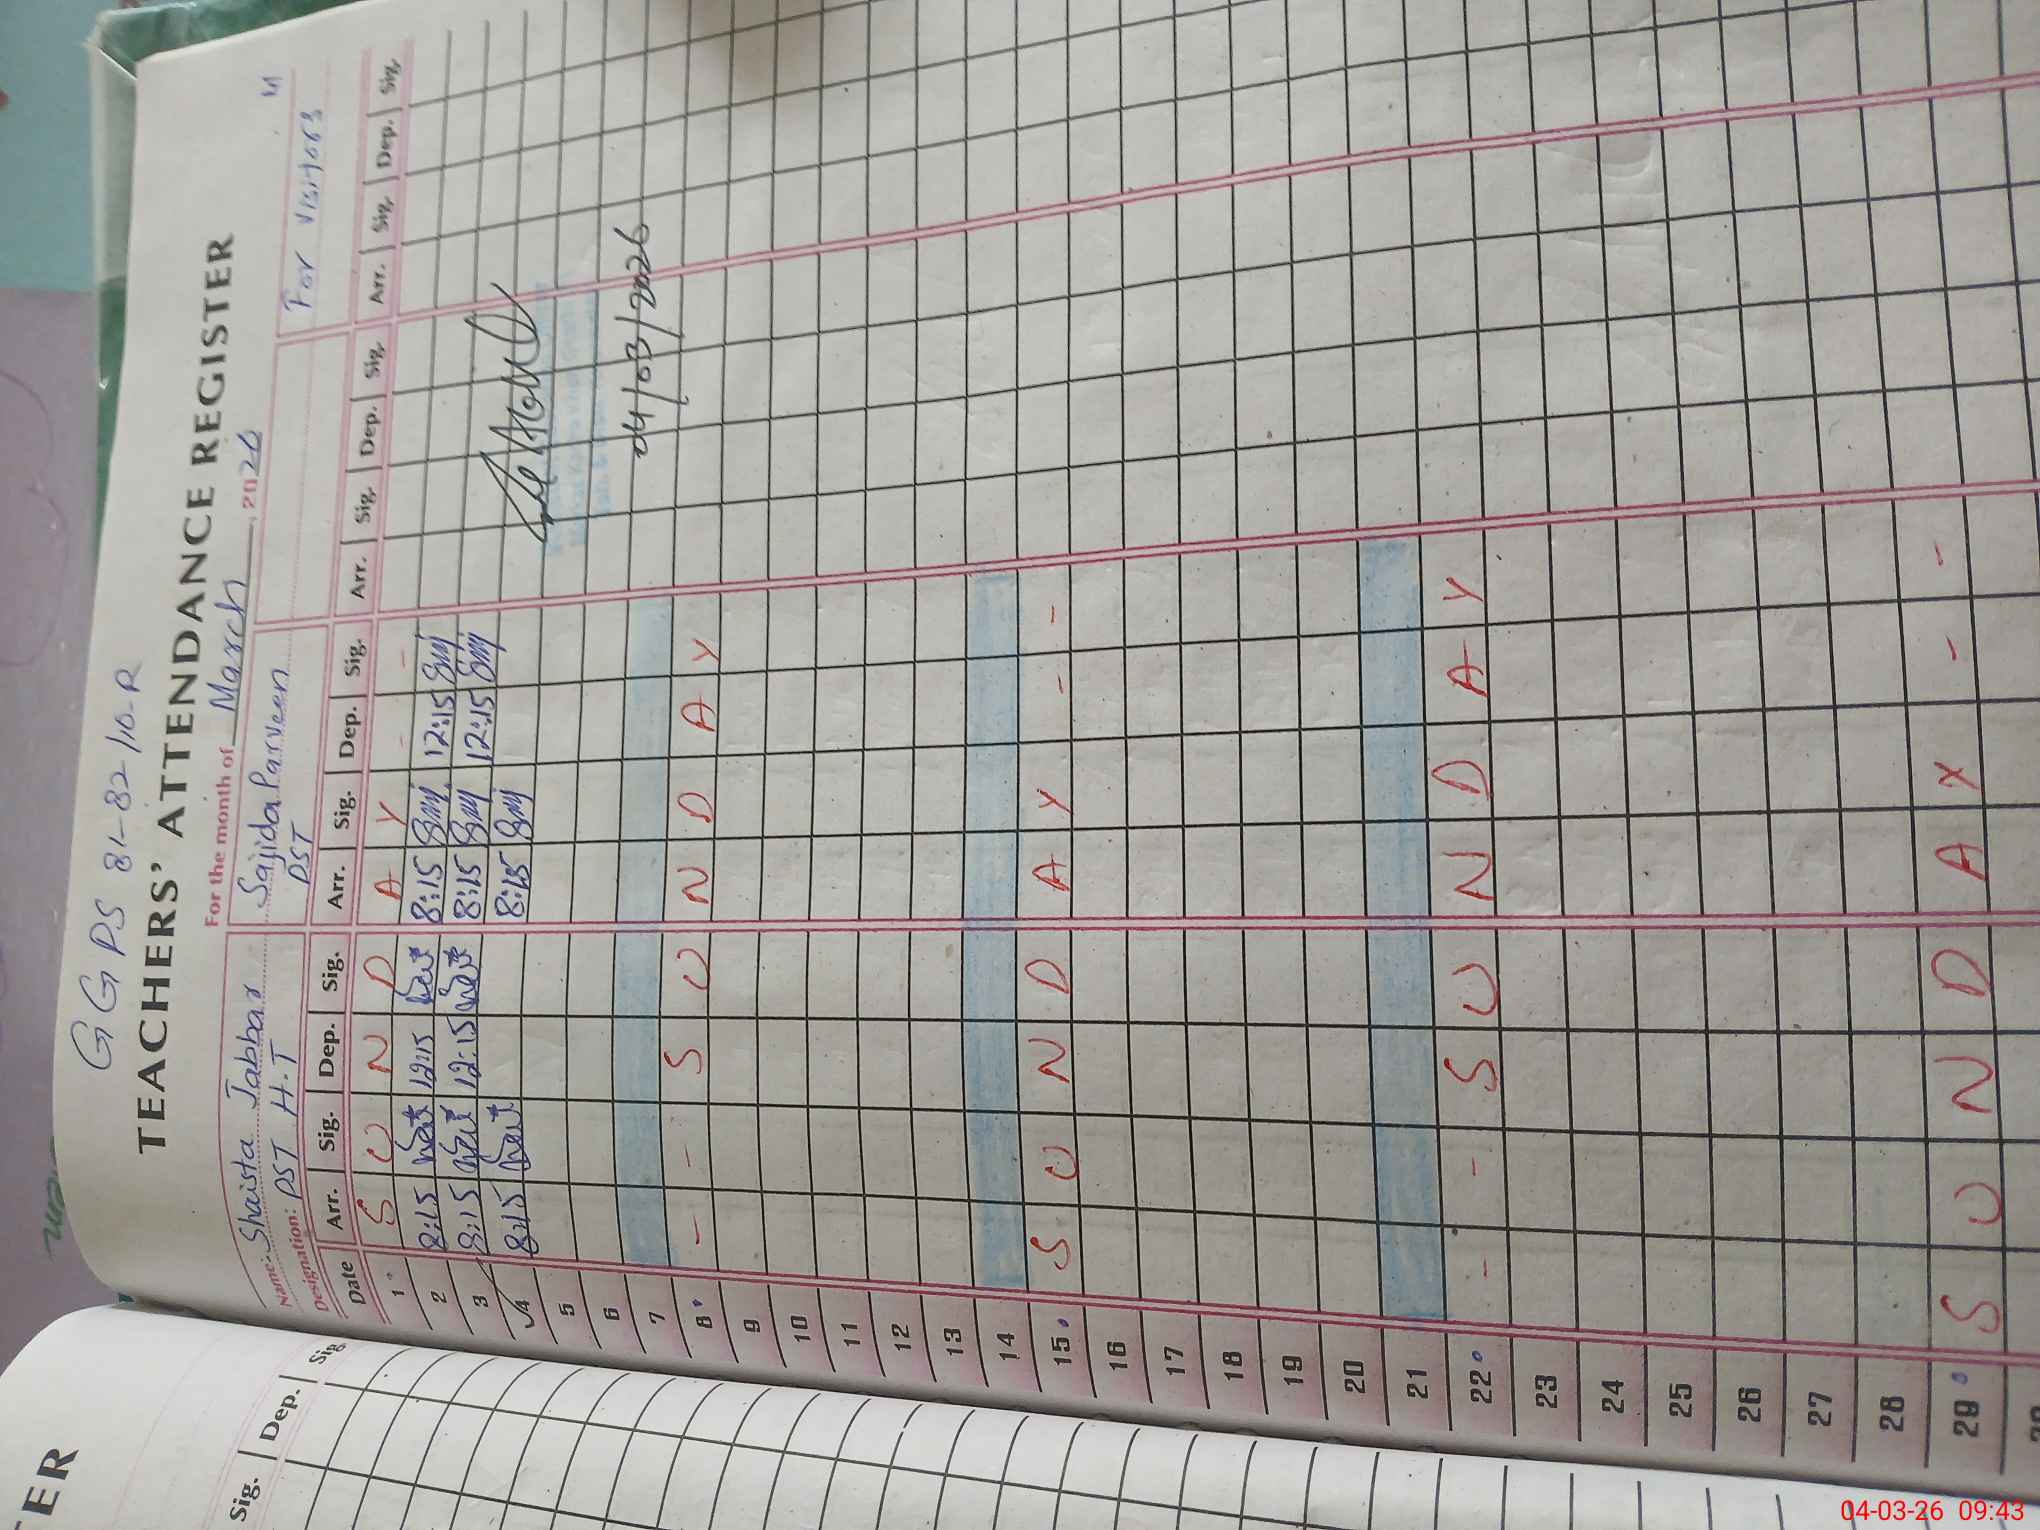 GGPS 81-82/10-R
TEACHERS' ATTENDANCE REGISTER
For the month of March, 2026
Name: Shaista Jabbar Sajida Parveen For visitors
Designation: PST H.T PST
Date Arr. Sig. Dep. Sig. Arr. Sig. Dep. Sig. Arr. Sig. Dep. Sig. Arr. Sig. Dep. Sig.
1 S U N D A Y - -
2 8:15 12:15 8:15 12:15
3 8:15 12:15 8:15 12:15
4 8:15 8:15
5
6
04/03/2026
7
8 - - S U N D A Y
9
10
11
12
13
14
15 S U N D A Y - -
16
17
18
19
20
21
22 - - S U N D A Y
23
24
25
26
27
28
29 S U N D A Y - -
TER
Sig. Dep. Sig.
04-03-26 09:43